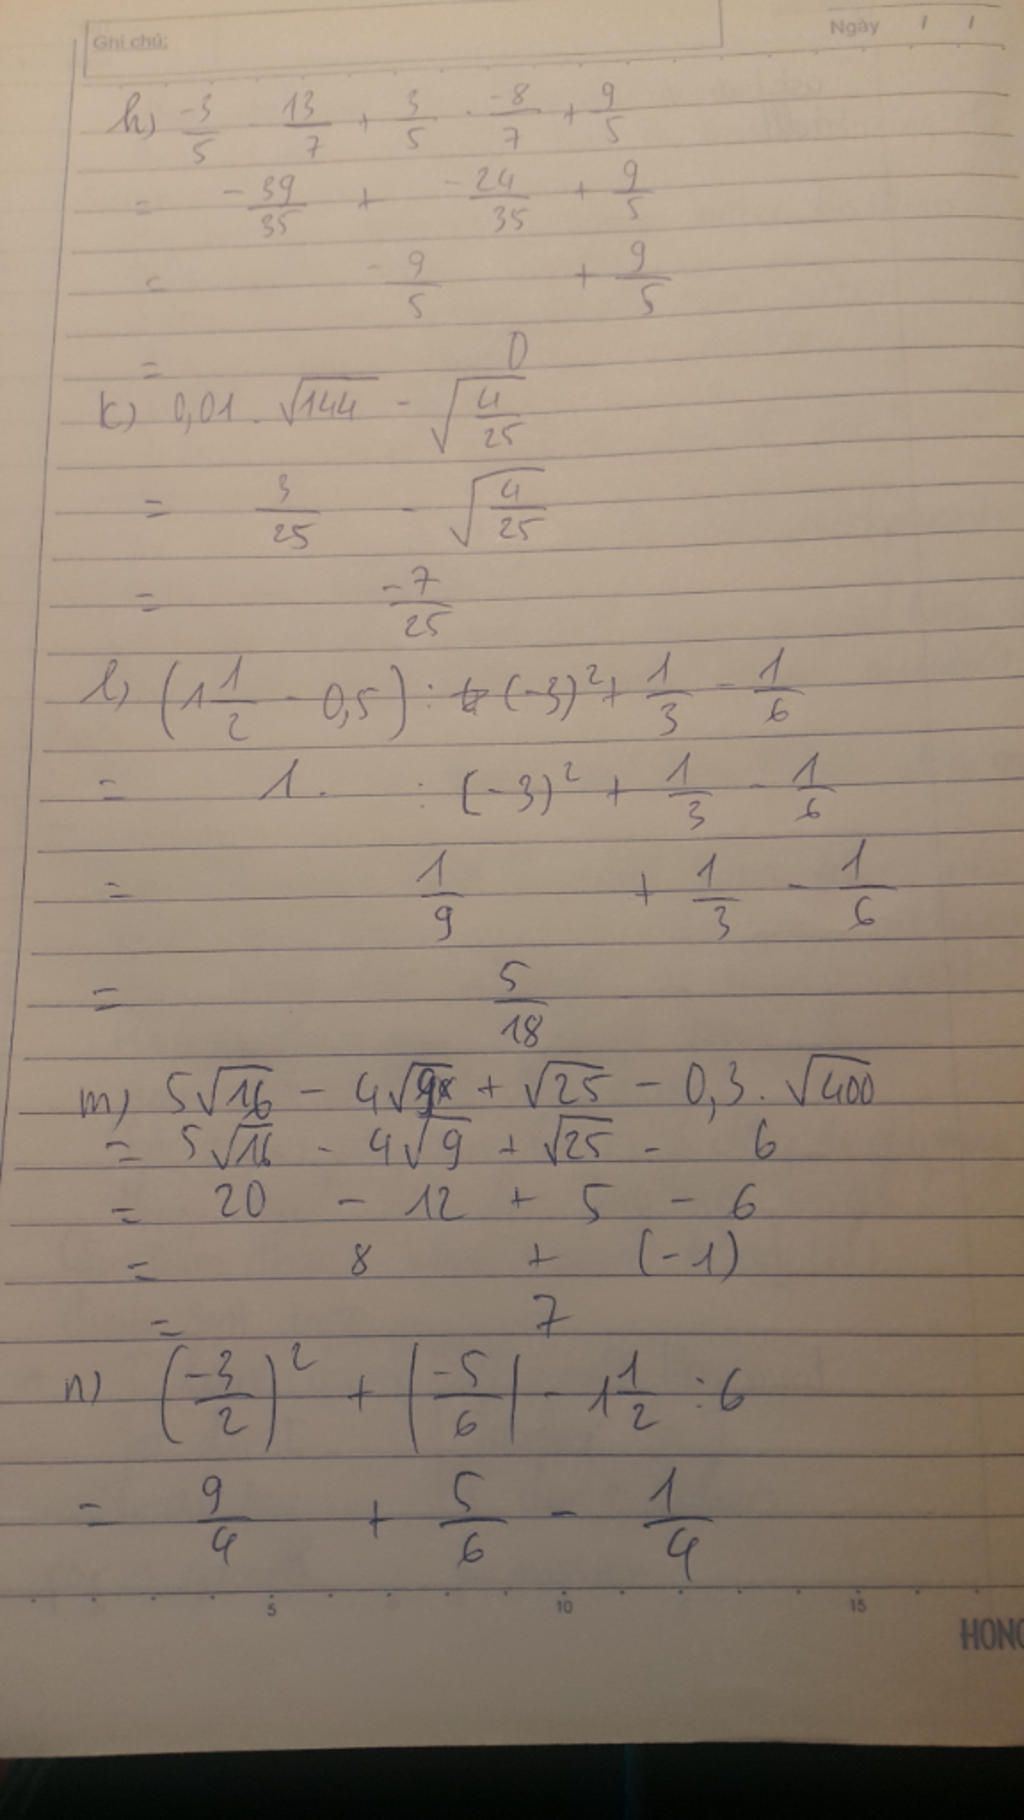 Ghi chú:
Ngày / /
h) \frac{-3}{5} . \frac{13}{7} + \frac{3}{5} . \frac{-8}{7} + \frac{9}{5}
= -\frac{39}{35} + \frac{-24}{35} + \frac{9}{5}
= -\frac{9}{5} + \frac{9}{5}
= 0
k) 0,01 . √144 - √\frac{4}{25}
= \frac{3}{25} - √\frac{4}{25}
= \frac{-7}{25}
l) (1\frac{1}{2} - 0,5) : (-3)² + \frac{1}{3} - \frac{1}{6}
= 1. : (-3)² + \frac{1}{3} - \frac{1}{6}
= \frac{1}{9} + \frac{1}{3} - \frac{1}{6}
= \frac{5}{18}
m) 5√16 - 4√9 + √25 - 0,3 . √400
= 5√16 - 4√9 + √25 - 6
= 20 - 12 + 5 - 6
= 8 + (-1)
= 7
n) (\frac{-3}{2})² + |\frac{-5}{6}| - 1\frac{1}{2} : 6
= \frac{9}{4} + \frac{5}{6} - \frac{1}{4}
5 10 15
HONG